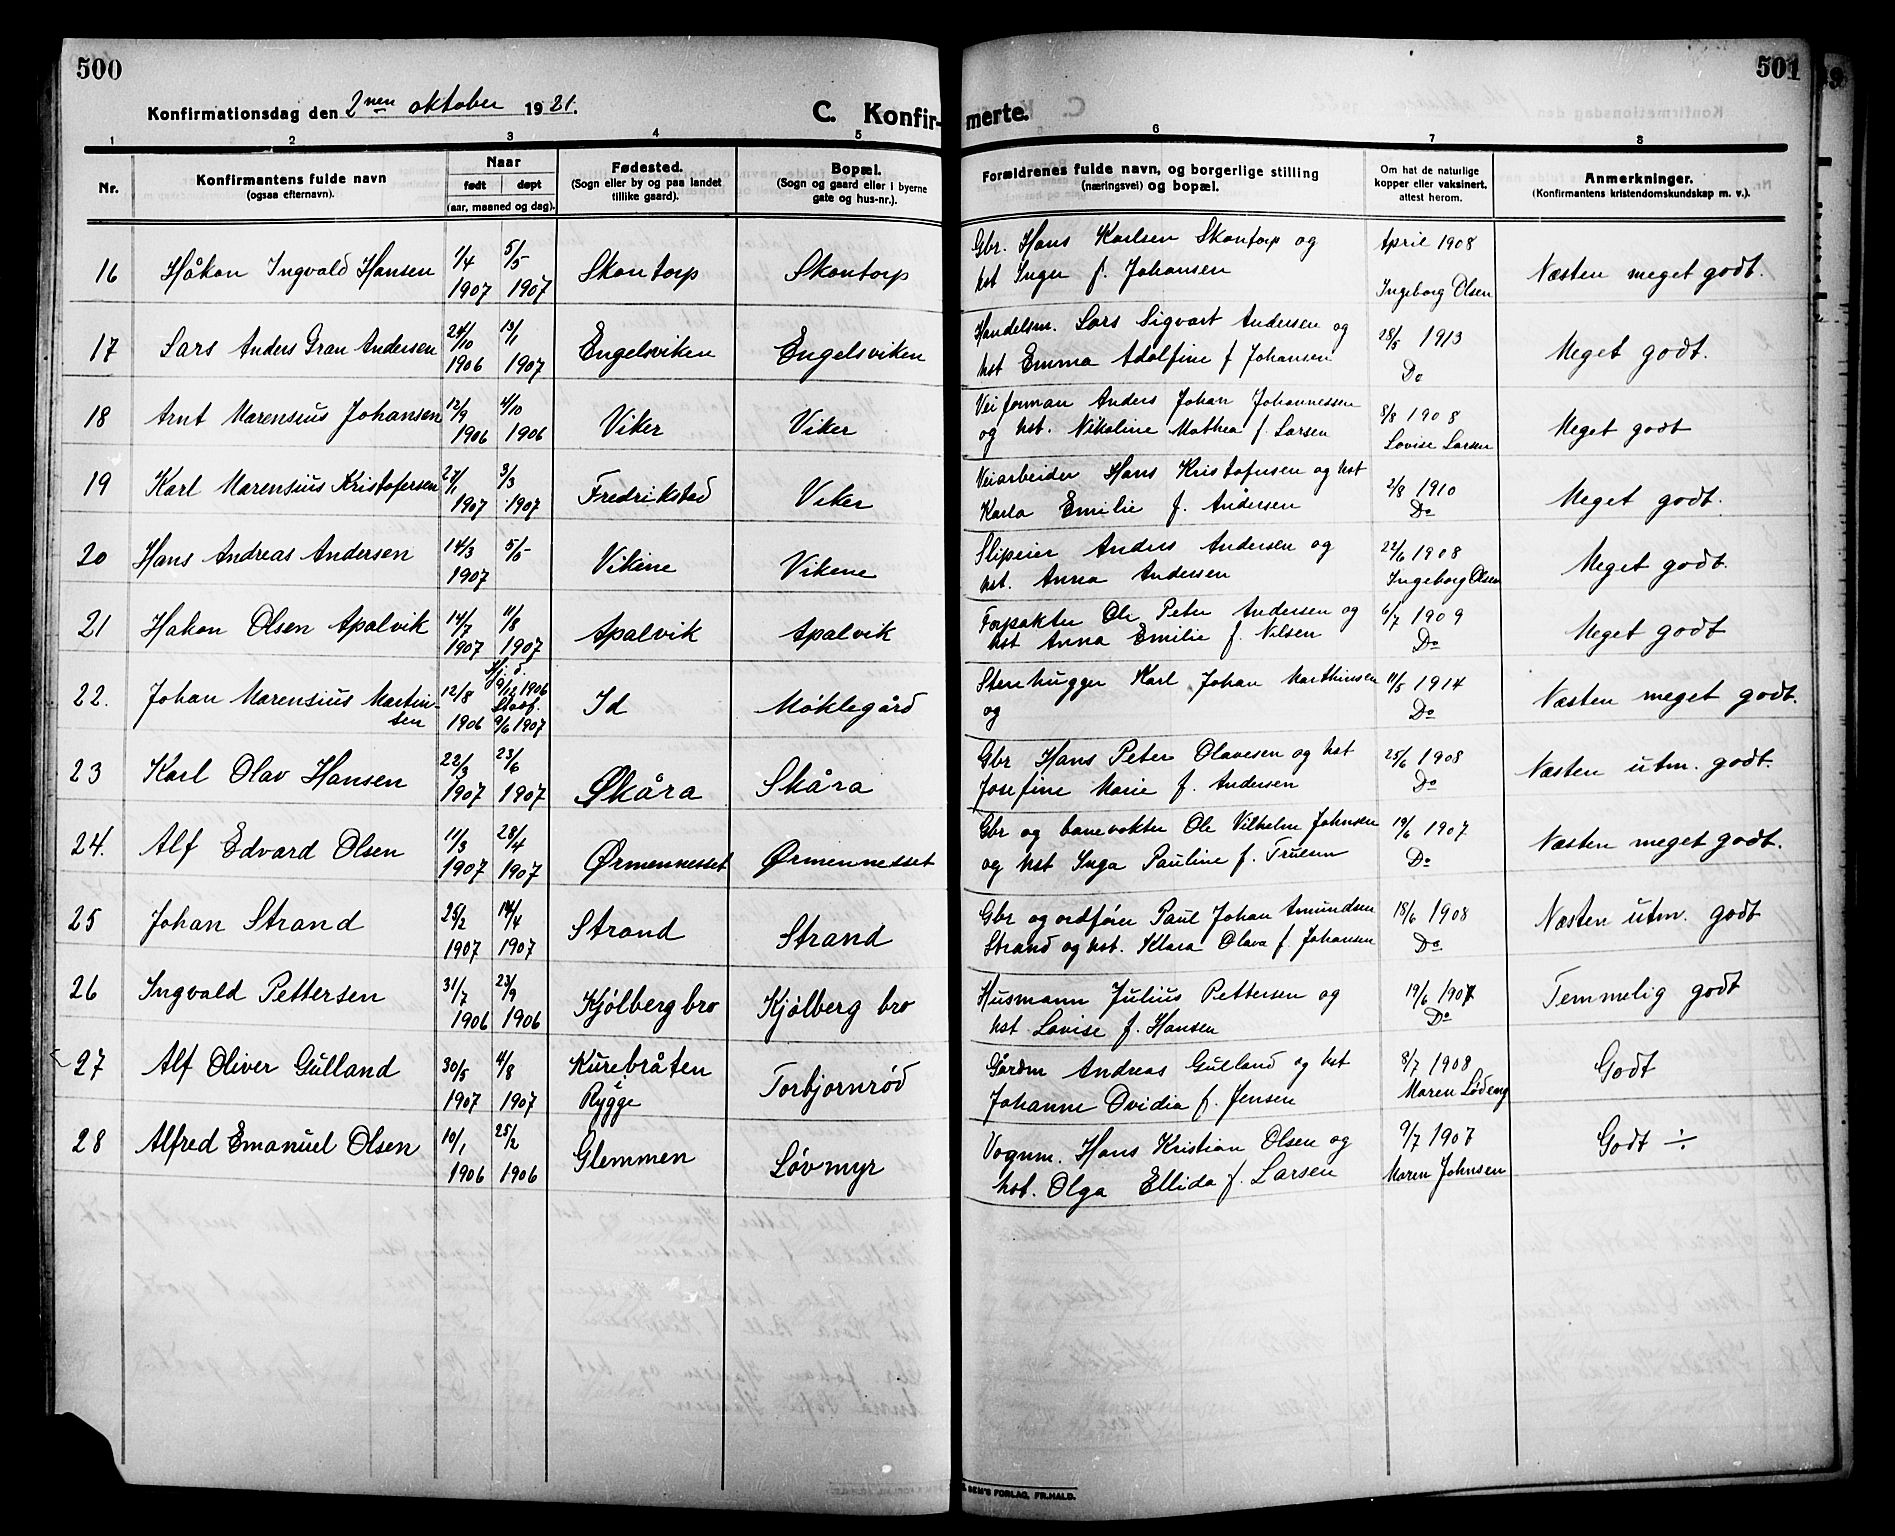 500
501
Konfirmationsdag den 2nen oktober 1921.
C. Konfirmerte.
1 2 3 4 5 6 7 8
Nr.
Konfirmantens fulde navn
(ogsaa efternavn).
Naar
født døpt
(aar, maaned og dag).
Fødested.
(Sogn eller by og paa landet
tillike gaard).
Bopæl.
(Sogn og gaard eller i byerne
gate og hus-nr.).
Forældrenes fulde navn, og borgerlige stilling
(næringsvei) og bopæl.
Om hat de naturlige
kopper eller vaksinert.
attest herom.
Anmerkninger.
(Konfirmantens kristendomskundskap m. v.).
16 Håkon Ingvald Hansen 1/4 1907 5/5 1907 Skontorp Skontorp Gbr. Hans Karlsen Skontorp og
hst Inger f. Johansen April 1908 Ingeborg Olsen Næsten meget godt.
17 Lars Anders Gran Andersen 24/10 1906 13/1 1907 Engelsviken Engelsviken Handelsm. Lars Sigvart Andersen og
hst Emma Adolfine f Johansen 28/5 1913 Do Meget godt.
18 Arnt Marensius Johansen 12/9 1906 4/10 1906 Viker Viker Veiforman Anders Johan Johannessen
og hst. Nikoline Mathea f. Larsen 8/8 1908 Lovise Larsen Meget godt
19 Karl Marensius Kristofersen 27/1 1907 3/3 1907 Fredrikstad Viker Veiarbeider Hans Kristofersen og hst
Karla Emilie f. Andersen 2/8 1910 Do Meget godt.
20 Hans Andreas Andersen 14/3 1907 5/5 Vikene Vikene Slipeier Anders Andersen og
hst. Anna Andersen 22/6 1908 Ingeborg Olsen Meget godt.
21 Hakon Olsen Apalvik 14/7 1907 11/8 1907 Apalvik Apalvik Forpakter Ole Peter Andersen og
hst Anna Emilie f. Nilsen 6/7 1909 Do Meget godt
22. Johan Marensius Martinsen 12/8 1906 Hj. d. 9/12 1906 Stadf. 9/6 1907 Id Møklegård Stenhugger Karl Johan Marthinsen
og 11/5 1914 Do Næsten meget godt.
23 Karl Olav Hansen 22/3 1907 23/6 1907 Skåra Skåra Gbr Hans Peter Olavesen og hst
Josefine Marie f. Andersen 25/6 1908 Do Næsten utm. godt.
24. Alf Edvard Olsen 11/3 1907 28/4 1907 Ørmennesset Ørmennesset Gbr og banevokter Ole Vilhelm Johnsen
og hst Inga Pauline f. Trulsen 19/6 1907 Do Næsten meget godt.
25 Johan Strand 25/2 1907 14/4 1907 Strand Strand Gbr og ordfører Paul Johan Amundsen
Strand og hst. Klara Olava f. Johansen 18/6 1908 Do Næsten utm. godt
26 Ingvald Pettersen 31/7 1906 23/9 1906 Kjølberg bro Kjølberg bro Husmann Julius Pettersen og
hst Lovise f. Hansen 19/6 1907 Do Temmelig godt
27 Alf Oliver Gulland 30/5 1907 4/8 1907 Kurebråten i Rygge Torbjornrød Gårdm Andreas Gulland og hst
Johanne Ovidia f. Jensen 8/7 1908 Maren Lødeng Godt
28 Alfred Emanuel Olsen 10/1 1906 25/2 1906 Glemmen Løvmyr Vognm. Hans Kristian Olsen og
hst. Olga Ellida f. Larsen 9/7 1907 Maren Johnsen Godt ÷
SEM'S FORLAG, FR.HALD.